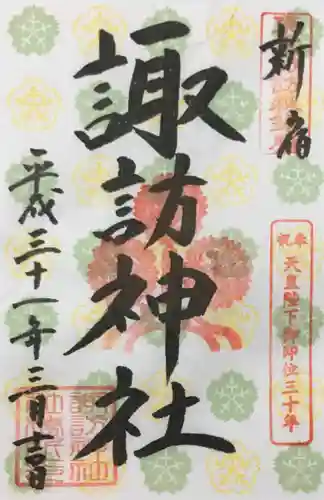 新宿
奉祝
天皇陛下御即位三十年
諏訪神社
平成三十一年三月